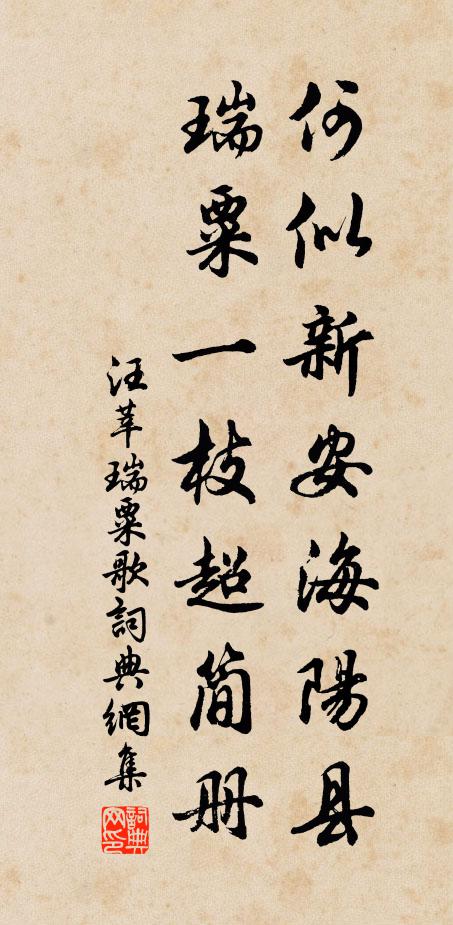 何似新安海陽县
瑞粟一枝超简册
汪莘瑞粟歌詞典網集
詞典网印